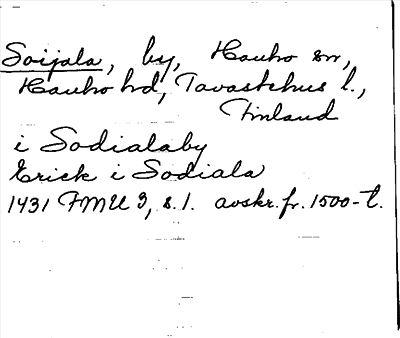 Soijala, by, Hauho sn,
Hauho hd, Tavastehus l.,
Finland
i Sodialaby
Erick i Sodiala
1431 FMU 3, s. 1. avskr. fr. 1500-t.